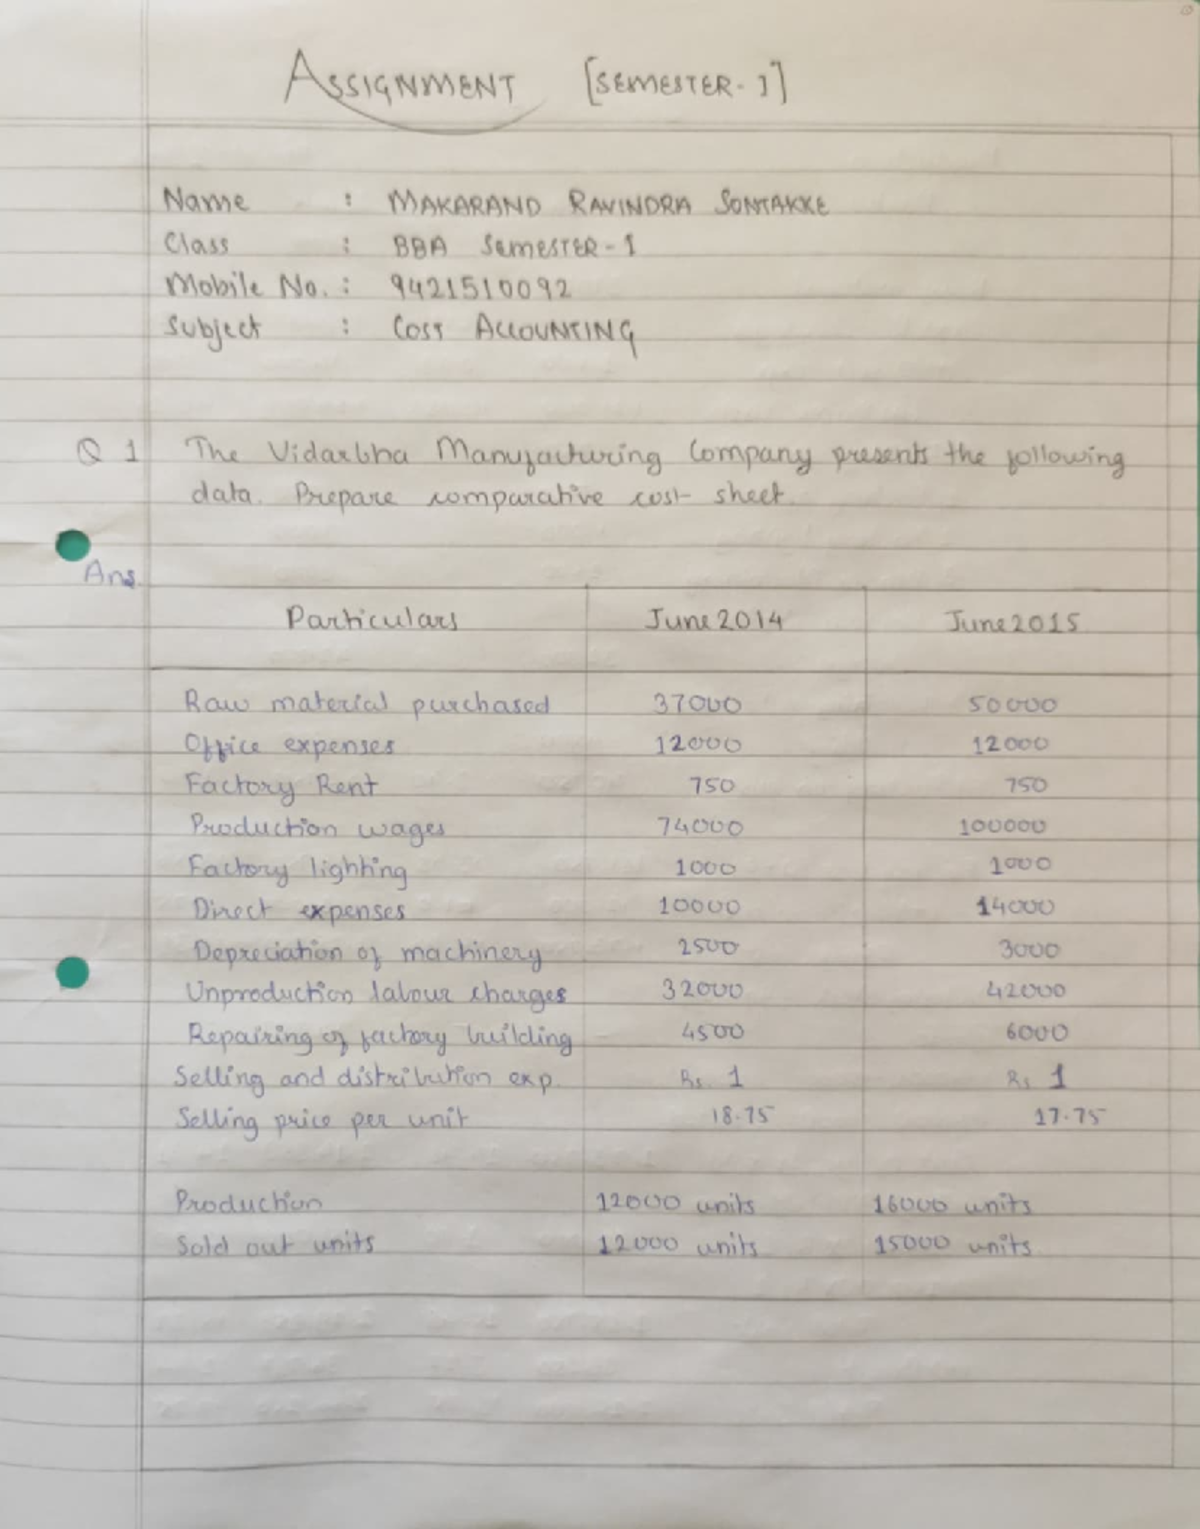 ASSIGNMENT [SEMESTER-1]
Name : MAKARAND RAVINDRA SONTAKKE
Class : BBA SEMESTER-1
Mobile No. : 9421510092
Subject : COST ACCOUNTING
Q 1 The Vidarbha Manufacturing Company presents the following
data. Prepare comparative cost sheet.
Ans.
Particulars June 2014 June 2015
Raw material purchased 37000 50000
Office expenses 12000 12000
Factory Rent 750 750
Production wages 74000 100000
Factory lighting 1000 1000
Direct expenses 10000 14000
Depreciation of machinery 2500 3000
Unproduction labour charges 32000 42000
Repairing of factory building 4500 6000
Selling and distribution exp. Rs. 1 Rs 1
Selling price per unit 18.75 17.75
Production 12000 units 16000 units
Sold out units 12000 units 15000 units